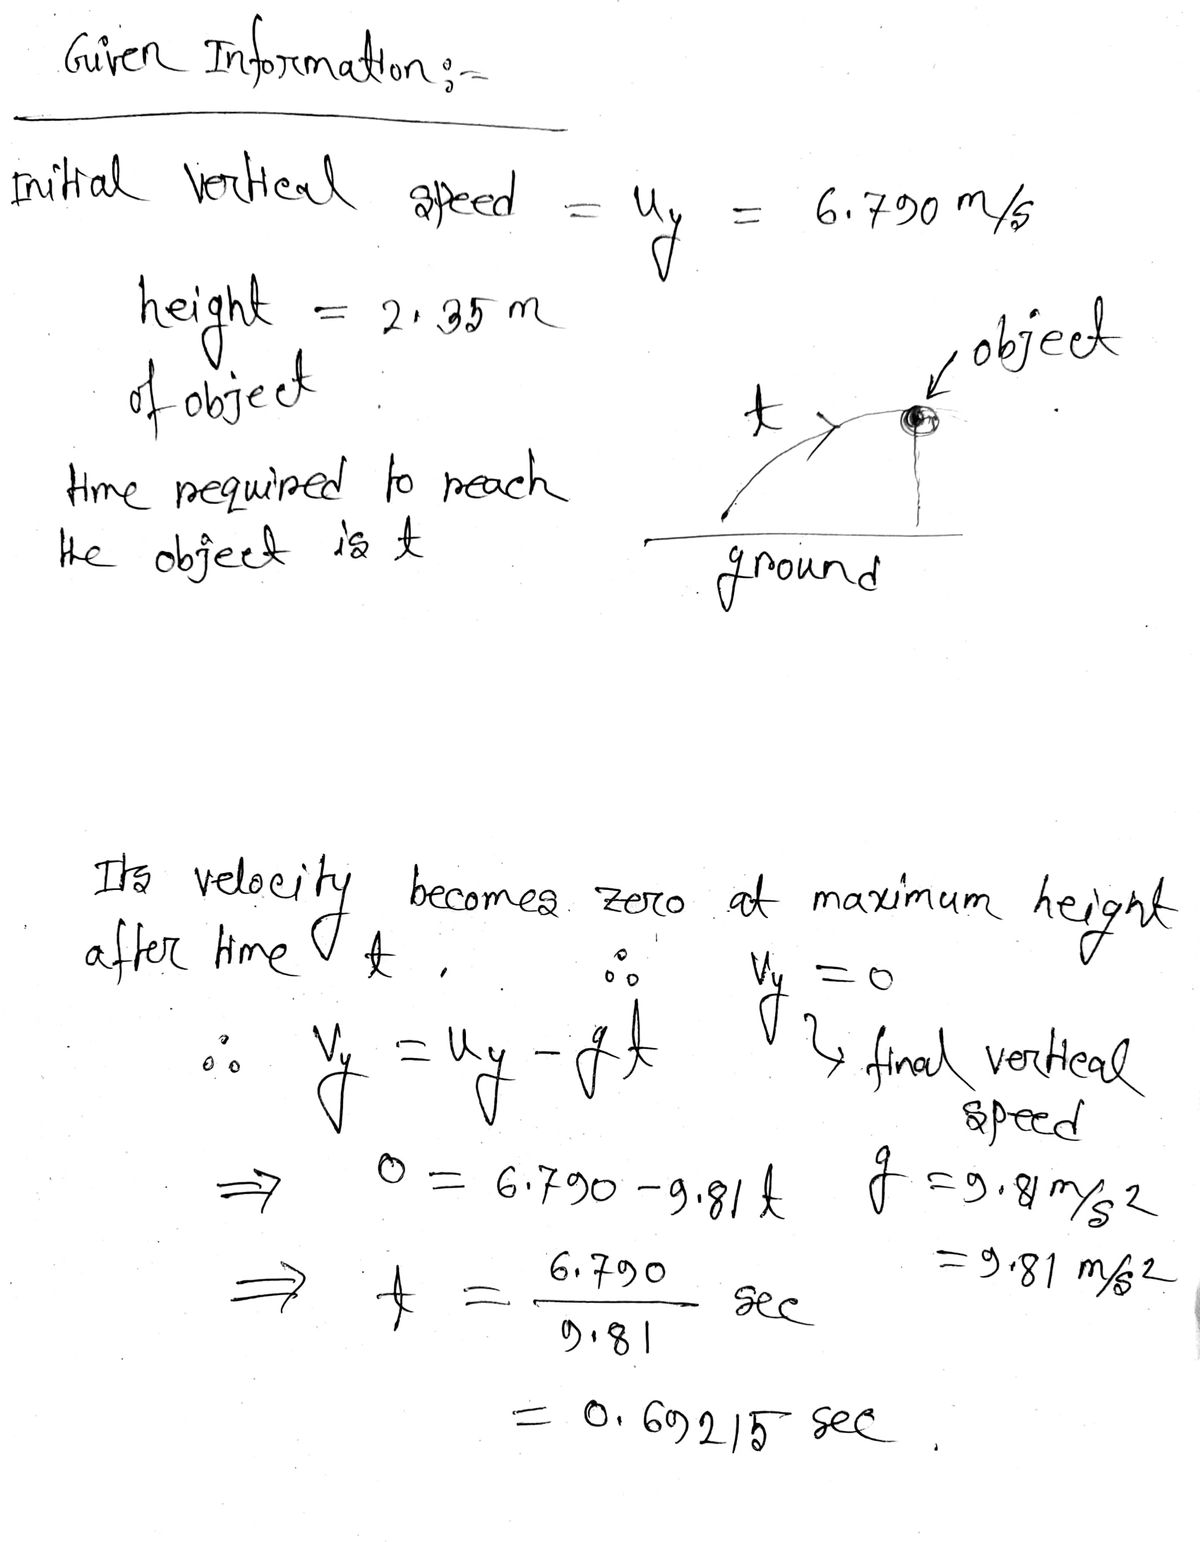 Given Information :-
Initial vertical speed = uy = 6.790 m/s
height = 2.35 m
of object
object
t
time required to reach
the object is t
ground
Its velocity becomes zero at maximum height
after time t . ∴ Vy = 0
∴ Vy = uy - gt ↳ final vertical
speed
⇒ 0 = 6.790 - 9.81 t g = 9.81 m/s2
⇒ t = 6.790 / 9.81 sec = 9.81 m/s2
= 0.69215 sec .